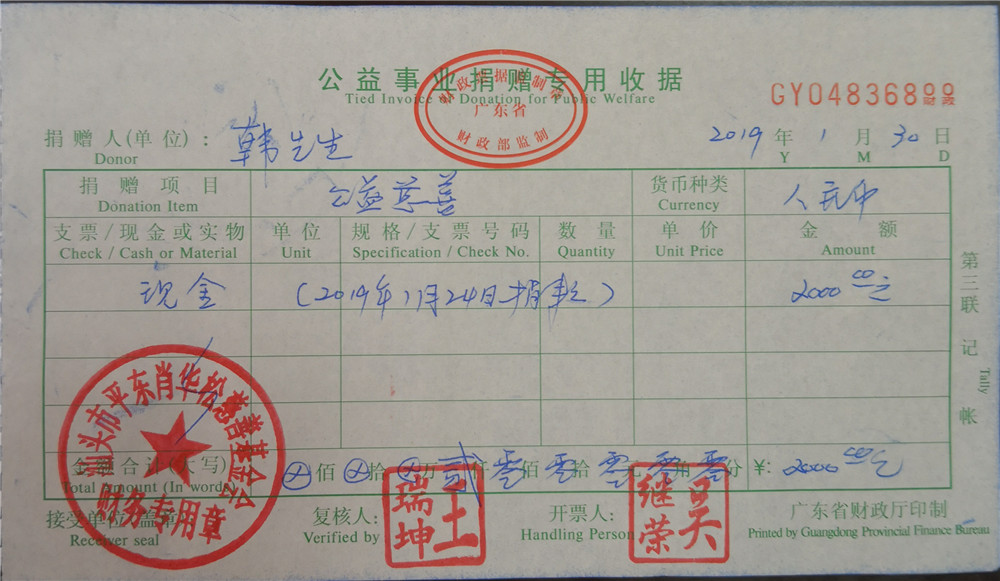 公益事业捐赠专用收据
Tied Invoice of Donation for Public Welfare
财政票据监制章
广东省
财政部监制
GY04836800
财政
捐赠人(单位): 韩先生 2019年1月30日
Donor Y M D
捐赠项目 公益慈善 货币种类 人民币
Donation Item Currency
支票/现金或实物 单位 规格/支票号码 数量 单价 金额
Check / Cash or Material Unit Specification / Check No. Quantity Unit Price Amount
现金 (2019年1月24日捐款) 2000.00元
第三联 记帐
Tally
金额合计(大写) ⊗佰⊗拾⊗万贰仟零佰零拾零元零角零分 ¥: 2000.00元
Total Amount (In words)
接受单位(盖章) 复核人: 开票人: 广东省财政厅印制
Receiver seal Verified by Handling Person Printed by Guangdong Provincial Finance Bureau
汕头市平东肖华松慈善基金会
财务专用章
王瑞坤
吴继荣